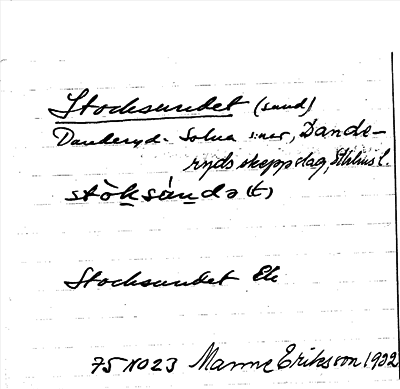 Stocksundet (sund)
Danderyd - Solna s:nar, Dande-
ryds skeppslag, Sthlms l.
stòksúndə(t)
Stocksundet Ek
75 NO 23 Manne Eriksson 1932